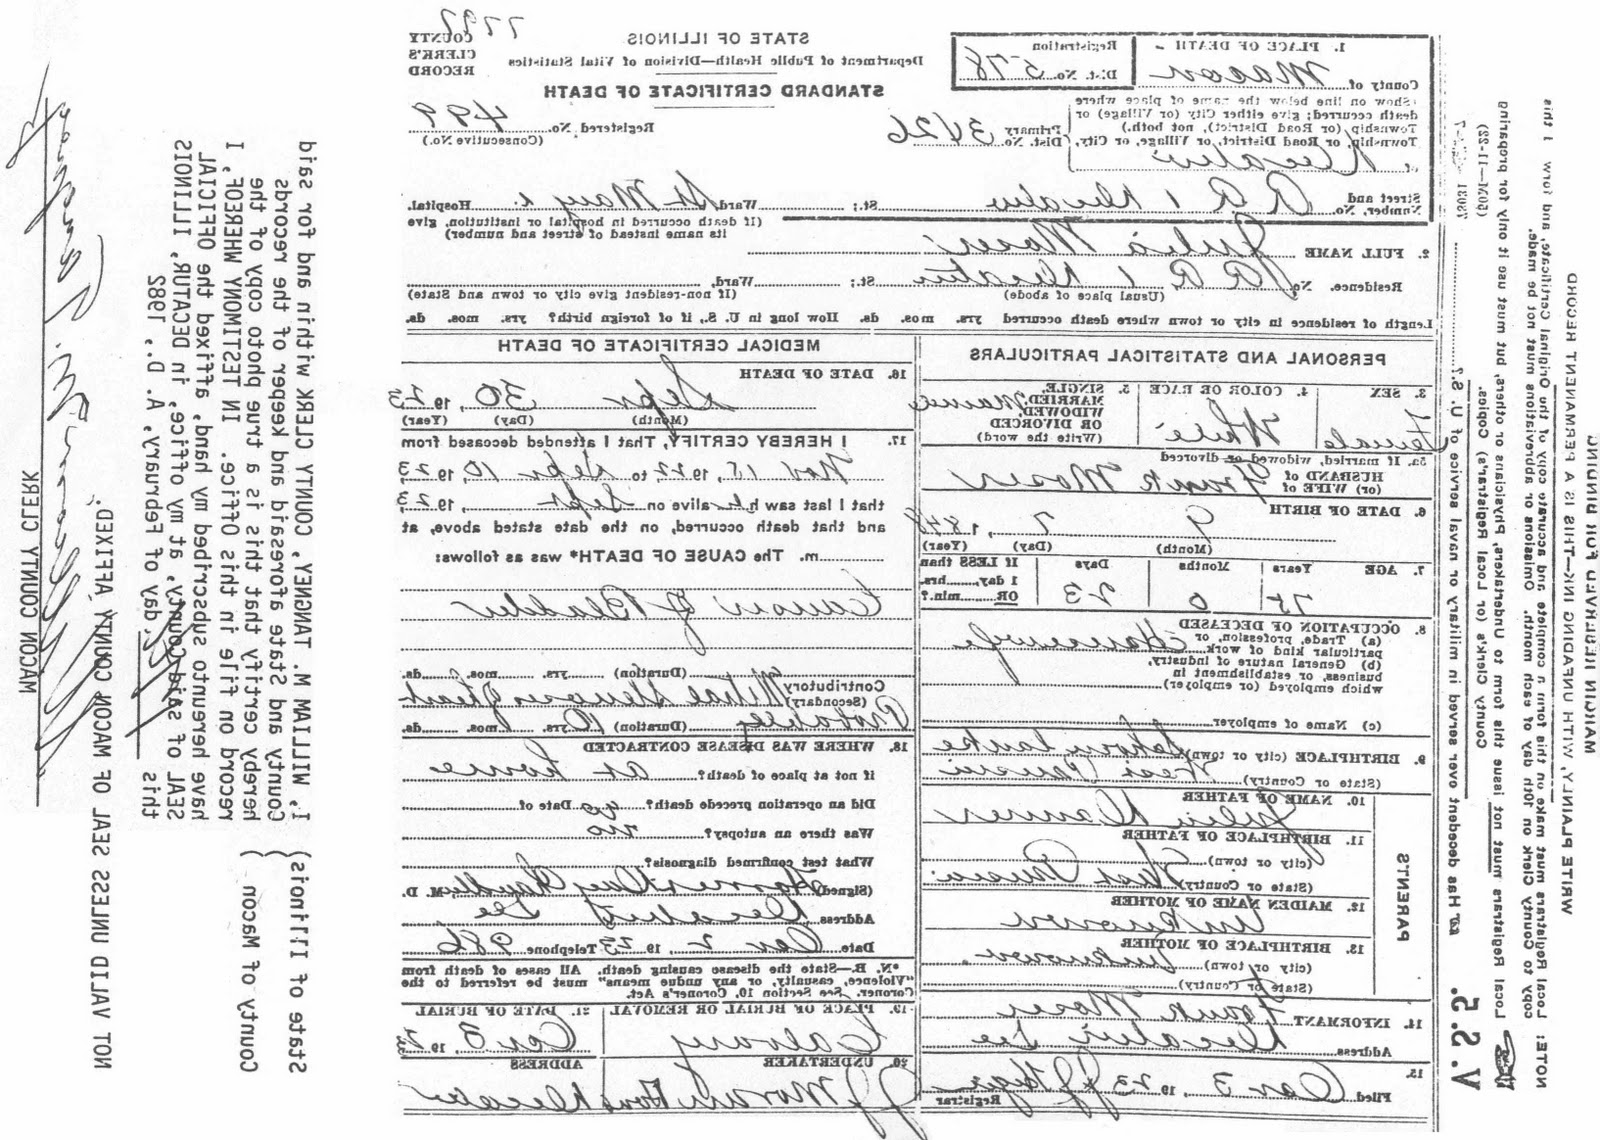 STATE OF ILLINOIS
Department of Public Health—Division of Vital Statistics
STANDARD CERTIFICATE OF DEATH
COUNTY
CLERK'S
RECORD
Registered No. 499
(Consecutive No.)
1. PLACE OF DEATH
County of Macon
Registration
Dist. No. 578
(Show on line below the name of place where
death occurred; give either City (or Village) or
Township (or Road District), not both.)
Township, or Road District, or Village, or City,
Primary
Dist. No. 3426
of Decatur
Street and
Number, No. R R 1 Decatur St.; Ward, St. Mary's Hospital.
(If death occurred in hospital or institution, give
its name instead of street and number)
2. FULL NAME Julia Moser
Residence. No. R R 1 Decatur St.; Ward,
(Usual place of abode) (If non-resident give city or town and State)
Length of residence in city or town where death occurred yrs. mos. ds. How long in U. S., if of foreign birth? yrs. mos. ds.
PERSONAL AND STATISTICAL PARTICULARS
3. SEX
Female
4. COLOR OR RACE
White
5. SINGLE,
MARRIED,
WIDOWED
OR DIVORCED
(Write the word)
5a. If married, widowed or divorced
HUSBAND of
(or) WIFE of Frank Moser
6. DATE OF BIRTH 9 7, 1848
(Month) (Day) (Year)
7. AGE Years Months Days
75 0 23
If LESS than
1 day, hrs.
OR min.?
8. OCCUPATION OF DECEASED
(a) Trade, profession, or
particular kind of work Housewife
(b) General nature of industry,
business, or establishment in
which employed (or employer)
(c) Name of employer
9. BIRTHPLACE (city or town)
(State or Country)
10. NAME OF FATHER
11. BIRTHPLACE OF FATHER
(city or town)
(State or Country)
PARENTS
12. MAIDEN NAME OF MOTHER
Unknown
13. BIRTHPLACE OF MOTHER
(city or town) Unknown
(State or Country)
14. INFORMANT Frank Moser
Address Decatur Ill
15.
Filed Oct 3 1923
Registrar
MEDICAL CERTIFICATE OF DEATH
16. DATE OF DEATH
Sept 30, 1923
(Month) (Day) (Year)
17. I HEREBY CERTIFY, That I attended deceased from
Nov 15, 1922 to Sept 10, 1923
that I last saw h alive on Sept, 1923
and that death occurred, on the date stated above, at
m. The CAUSE OF DEATH* was as follows:
Cancer of Bladder
(Duration) yrs. mos. ds.
Contributory
(Secondary) Mitral Stenosis of heart
Probably (Duration) 10 yrs. mos. ds.
18. WHERE WAS DISEASE CONTRACTED
if not at place of death? at home
Did an operation precede death? no Date of
Was there an autopsy? no
What test confirmed diagnosis?
(Signed) M. D.
Address Decatur Ill
Date Oct 2, 1923 Telephone 986
*N. B.—State the disease causing death. All cases of death from
"Violence, casualty, or any undue means" must be referred to the
Coroner. See Section 10, Coroner's Act.
19. PLACE OF BURIAL OR REMOVAL
Calvary
21. DATE OF BURIAL
Oct 3, 1923
20. UNDERTAKER
ADDRESS
J J Moran & Sons Decatur
MARGIN RESERVED FOR BINDING
WRITE PLAINLY, WITH UNFADING INK—THIS IS A PERMANENT RECORD
V. S. 5.
Local Registrars must not issue this form to Undertakers, Physicians or others, but must use it only for preparing
County Clerk's (or Local Registrars) Copies.
(50M—11-22)
State of Illinois )
County of Macon )
I, WILLIAM M. TANGNEY, COUNTY CLERK within and for said
County and State aforesaid and keeper of the records
hereby certify that this is a true photo copy of the
record on file in this Office. IN TESTIMONY WHEREOF, I
have hereunto subscribed my hand, and affixed the OFFICIAL
SEAL of said County, at my office, in DECATUR, ILLINOIS
this day of February, A. D., 1982
NOT VALID UNLESS SEAL OF MACON COUNTY AFFIXED.
MACON COUNTY CLERK